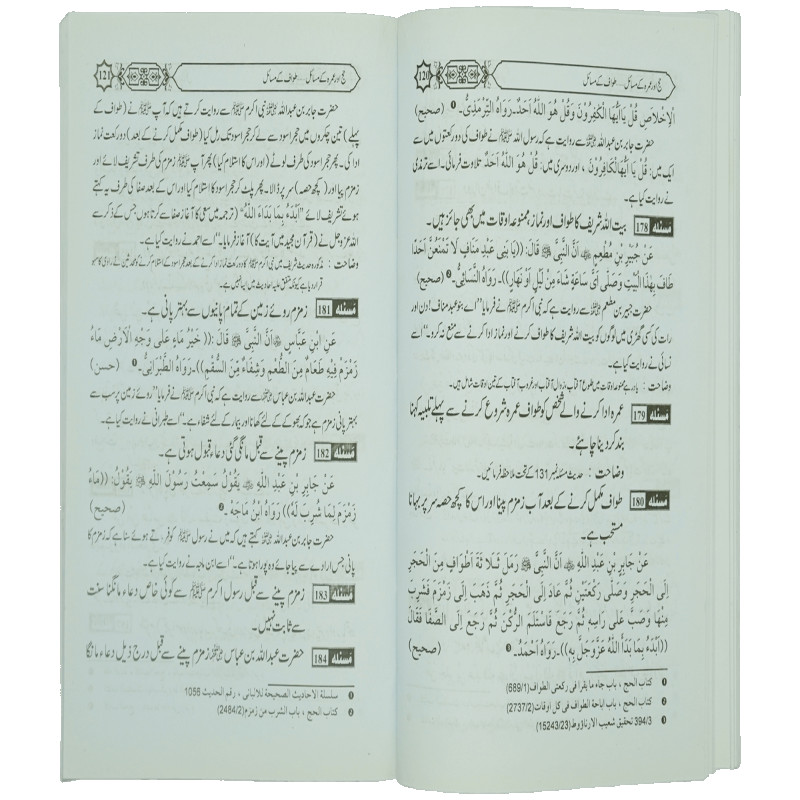 حج اور عمرہ کے مسائل.... طواف کے مسائل
120
الْاِخْلَاصِ قُلْ يَاَيُّهَا الْكَافِرُوْنَ وَقُلْ هُوَ اللّٰهُ اَحَدٌ۔ رَوَاهُ التِّرْمِذِيُّ۔ ❶ (صحیح)
حضرت جابر بن عبداللہ ﷺ سے روایت ہے کہ رسول اللہ ﷺ نے طواف کی دو رکعتوں میں سے
ایک میں: قُلْ يَا اَيُّهَا الْكَافِرُوْنَ ، اور دوسری میں: قُلْ هُوَ اللّٰهُ اَحَدٌ تلاوت فرمائی۔ اسے ترمذی
نے روایت کیا ہے۔
مسئلہ 178 بیت اللہ شریف کا طواف اور نماز، ممنوعہ اوقات میں بھی جائز ہیں۔
عَنْ جُبَيْرِ بْنِ مُطْعِمٍ اَنَّ النَّبِيَّ ﷺ قَالَ: ((يَا بَنِي عَبْدِ مَنَافٍ لَا تَمْنَعُنَّ اَحَدًا
طَافَ بِهٰذَا الْبَيْتِ وَصَلّٰى اَيَّ سَاعَةٍ شَاءَ مِنْ لَيْلٍ اَوْ نَهَارٍ))۔ رَوَاهُ النَّسَائِيُّ۔ ❷ (صحیح)
حضرت جبیر بن مطعم سے روایت ہے کہ نبی اکرم ﷺ نے فرمایا "اے بنو عبد مناف! دن اور
رات کی کسی گھڑی میں لوگوں کو بیت اللہ شریف کا طواف کرنے اور نماز ادا کرنے سے منع نہ کرو۔" اسے
نسائی نے روایت کیا ہے۔
وضاحت : یاد رہے ممنوعہ اوقات میں طلوع آفتاب، زوال آفتاب اور غروب آفتاب کے تین اوقات شامل ہیں۔
مسئلہ 179 عمرہ ادا کرنے والے شخص کو طواف عمرہ شروع کرنے سے پہلے تلبیہ کہنا
بند کر دینا چاہئے۔
وضاحت : حدیث مسئلہ نمبر 131 کے تحت ملاحظہ فرمائیں۔
مسئلہ 180 طواف مکمل کرنے کے بعد آب زمزم پینا اور اس کا کچھ حصہ سر پر بہانا
مستحب ہے۔
عَنْ جَابِرِ بْنِ عَبْدِ اللّٰهِ اَنَّ النَّبِيَّ ﷺ رَمَلَ ثَلَا ثَةَ اَطْوَافٍ مِنَ الْحَجَرِ
اِلَى الْحَجَرِ وَصَلّٰى رَكْعَتَيْنِ ثُمَّ عَادَ اِلَى الْحَجَرِ ثُمَّ ذَهَبَ اِلٰى زَمْزَمَ فَشَرِبَ
مِنْهَا وَصَبَّ عَلٰى رَاسِهٖ ثُمَّ رَجَعَ فَاسْتَلَمَ الرُّكْنَ ثُمَّ رَجَعَ اِلَى الصَّفَا فَقَالَ
((اَبْدَءُ بِمَا بَدَأَ اللّٰهُ عَزَّوَجَلَّ بِهٖ))۔ رَوَاهُ اَحْمَدُ۔ ❸ (صحیح)
❶ كتاب الحج ، باب جاء ما يقرا فى ركعتى الطواف (689/1)
❷ كتاب الحج ، باب اباحة الطواف فى كل اوقات (2737/2)
❸ 394/3 تحقیق شعیب الارناؤوط (15243/23)
حج اور عمرہ کے مسائل.... طواف کے مسائل
121
حضرت جابر بن عبداللہ ﷺ نبی اکرم ﷺ سے روایت کرتے ہیں کہ آپ ﷺ نے (طواف کے
پہلے) تین چکروں میں حجر اسود سے لے کر حجر اسود تک رمل کیا (اور طواف مکمل کرنے کے بعد) دو رکعت نماز
ادا کی۔ پھر حجر اسود کی طرف لوٹے (اور اس کا استلام کیا) پھر آپ ﷺ زمزم کی طرف تشریف لائے اور
زمزم پیا اور (کچھ حصہ) سر پر ڈالا۔ پھر پلٹ کر حجر اسود کا استلام کیا اور اس کے بعد صفا کی طرف یہ کہتے
ہوئے تشریف لائے "اَبْدَءُ بِمَا بَدَاءَ اللّٰهُ" (ترجمہ میں سعی کا آغاز صفا سے کرتا ہوں جس کے ذکر سے
اللہ عزوجل نے (قرآن مجید میں آیت کا) آغاز فرمایا۔" اسے احمد نے روایت کیا ہے۔
مسئلہ 181 زمزم روئے زمین کے تمام پانیوں سے بہتر پانی ہے۔
عَنِ ابْنِ عَبَّاسٍ اَنَّ النَّبِيَّ ﷺ قَالَ: (( خَيْرُ مَاءٍ عَلٰى وَجْهِ الْاَرْضِ مَاءُ
زَمْزَمَ فِيْهِ طَعَامٌ مِنَ الطُّعْمِ وَشِفَاءٌ مِنَ السُّقْمِ))۔ رَوَاهُ الطَّبَرَانِيُّ۔ ❶ (حسن)
حضرت عبداللہ بن عباس سے روایت ہے کہ نبی اکرم ﷺ نے فرمایا "روئے زمین پر سب سے
بہتر پانی زمزم ہے جو کہ بھوکے کے لئے کھانا اور بیمار کے لئے شفا ہے۔" اسے طبرانی نے روایت کیا ہے۔
مسئلہ 182 زمزم پینے سے قبل مانگی گئی دعاء قبول ہوتی ہے۔
عَنْ جَابِرِ بْنِ عَبْدِ اللّٰهِ يَقُوْلُ سَمِعْتُ رَسُوْلَ اللّٰهِ ﷺ يَقُوْلُ: ((مَاءُ
زَمْزَمَ لِمَا شُرِبَ لَهٗ)) رَوَاهُ ابْنُ مَاجَهْ ۔❷ (صحیح)
حضرت جابر بن عبداللہ کہتے ہیں کہ میں نے رسول اللہ ﷺ کو فرماتے ہوئے سنا ہے کہ زمزم کا
پانی جس ارادے سے پیا جائے وہ پورا ہوتا ہے۔" اسے ابن ماجہ نے روایت کیا ہے۔
مسئلہ 183 زمزم پینے سے قبل رسول اکرم ﷺ سے کوئی خاص دعاء مانگنا سنت
سے ثابت نہیں۔
مسئلہ 184 حضرت عبداللہ بن عباس زمزم پینے سے قبل درج ذیل دعاء مانگا
❶ سلسلة الاحاديث الصحيحة للالبانى ، رقم الحديث 1056
❷ كتاب الحج ، باب الشرب من زمزم (2484/2)